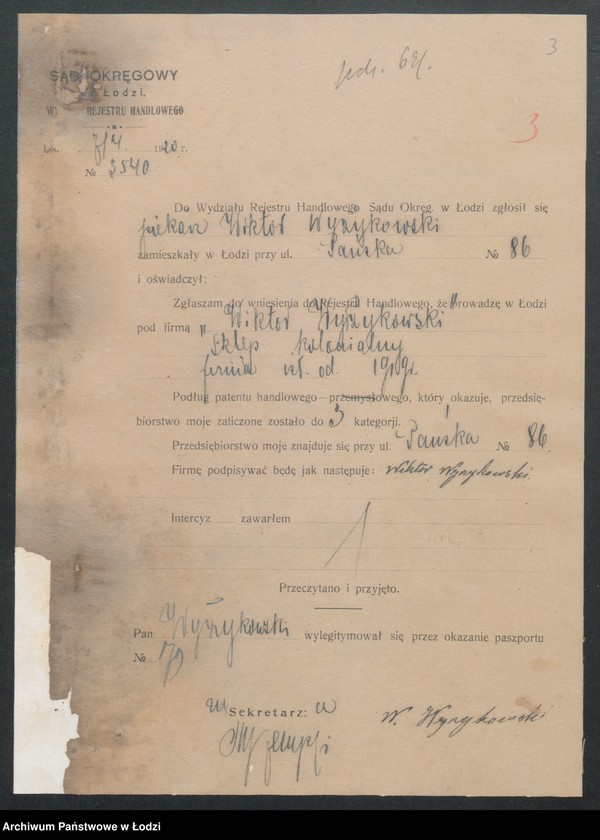 3
3
SĄD OKRĘGOWY
Łodzi.
REJESTRU HANDLOWEGO
7/4 1920 r.
№ 3540
Do Wydziału Rejestru Handlowego Sądu Okręg. w Łodzi zgłosił się
piekarz Wiktor Wyżykowski
zamieszkały w Łodzi przy ul. Pańska № 86
i oświadczył:
Zgłaszam do wniesienia do Rejestru Handlowego, że prowadzę w Łodzi
pod firmą „Wiktor Wyżykowski
sklep kolonialny
firma ist. od. 1919 r.
Podług patentu handlowego przemysłowego, który okazuję, przedsię-
biorstwo moje zaliczone zostało do 3 kategorji.
Przedsiębiorstwo moje znajduje się przy ul. Pańska № 86
Firmę podpisywać będę jak następuje: Wiktor Wyzykowski
Intercyz zawarłem
Przeczytano i przyjęto.
Pan Wyżykowski wylegitymował się przez okazanie paszportu
№
Sekretarz:
W. Wyzykowski
Archiwum Państwowe w Łodzi